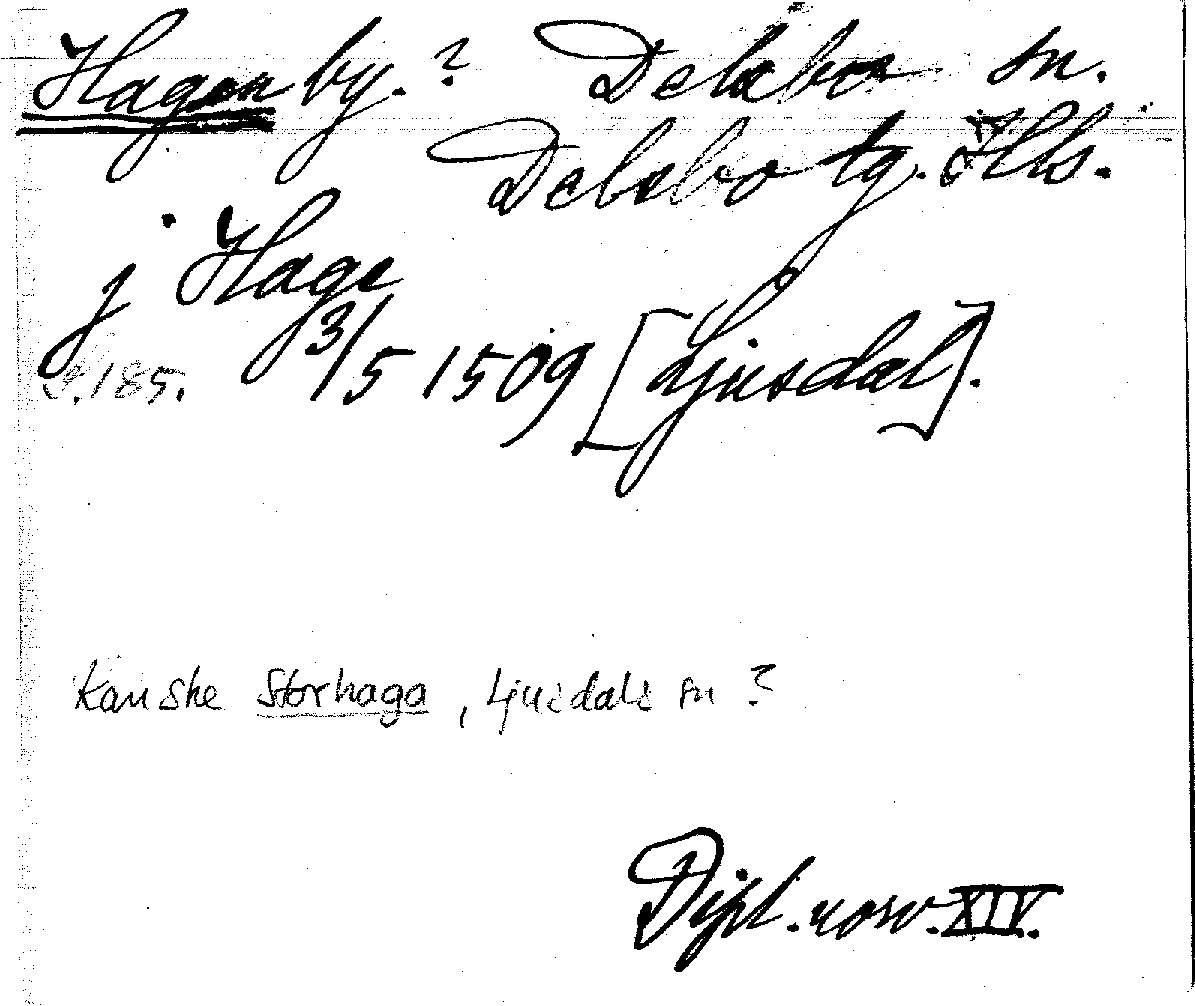 Hagen by.? Delsbo sn.
Delsbo tg. Hls.
j Hage
s. 185. 13/5 1509 [Ljusdal].
Kanske Storhaga, Ljusdals sn ?
Dipl. norv. XIV.